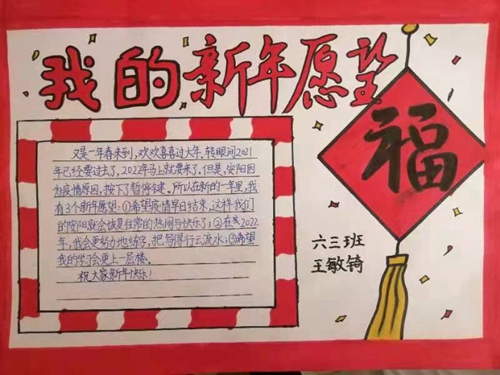 我的新年愿望
又是一年春来到,欢欢喜喜过大年。转眼间2021
年已经要过去了,2022年马上就要来了。但是,安阳因
为疫情原因,按下了暂停键,所以在新的一年里,我
有3个新年愿望:①希望疫情早日结束,这样我们
的安阳就会恢复往常的热闹与快乐了;②在2022
年,我会更努力地练字,把写得行云流水;③希望
我的学习会更上一层楼。
祝大家新年快乐!
福
六三班
王敏锜